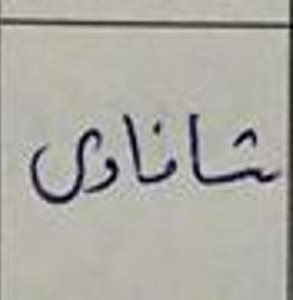 شانادی